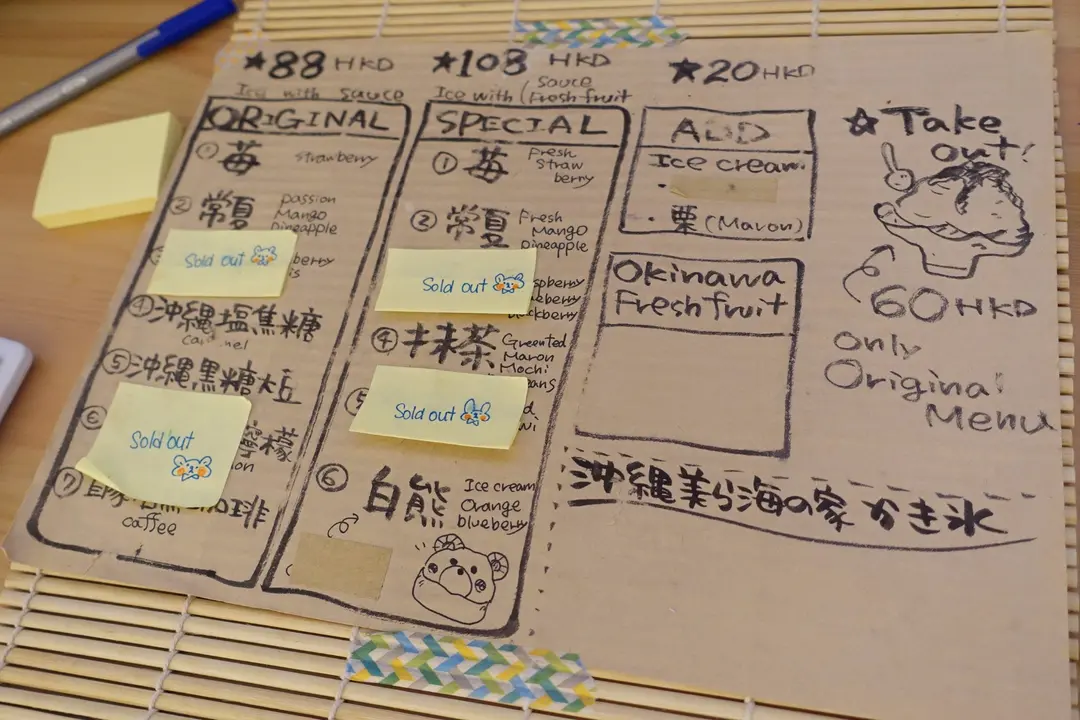 ★88 HKD
Ice with sauce
ORIGINAL
① 苺 strawberry
② 常夏 passion
Mango
Pineapple
Sold out
berry
④ 沖縄塩焦糖
⑤ 沖縄黒糖大豆
⑥ 檸檬
Sold out
⑦
coffee
★108 HKD
Ice with ( sauce
Fresh fruit
SPECIAL
① 苺 Fresh
Straw
berry
② 常夏 Fresh
Mango
Pineapple
Sold out
spberry
eberry
blackberry
④ 抹茶 Greented
Maron
Mochi
eans
⑤
Sold out
⑥ 白熊 Ice cream
Orange
blueberry
★20 HKD
ADD
Ice cream
・
・栗 (Maron)
Okinawa
Fresh fruit
☆ Take
out!
60 HKD
only
Original
Menu
沖縄美ら海の家 かき氷